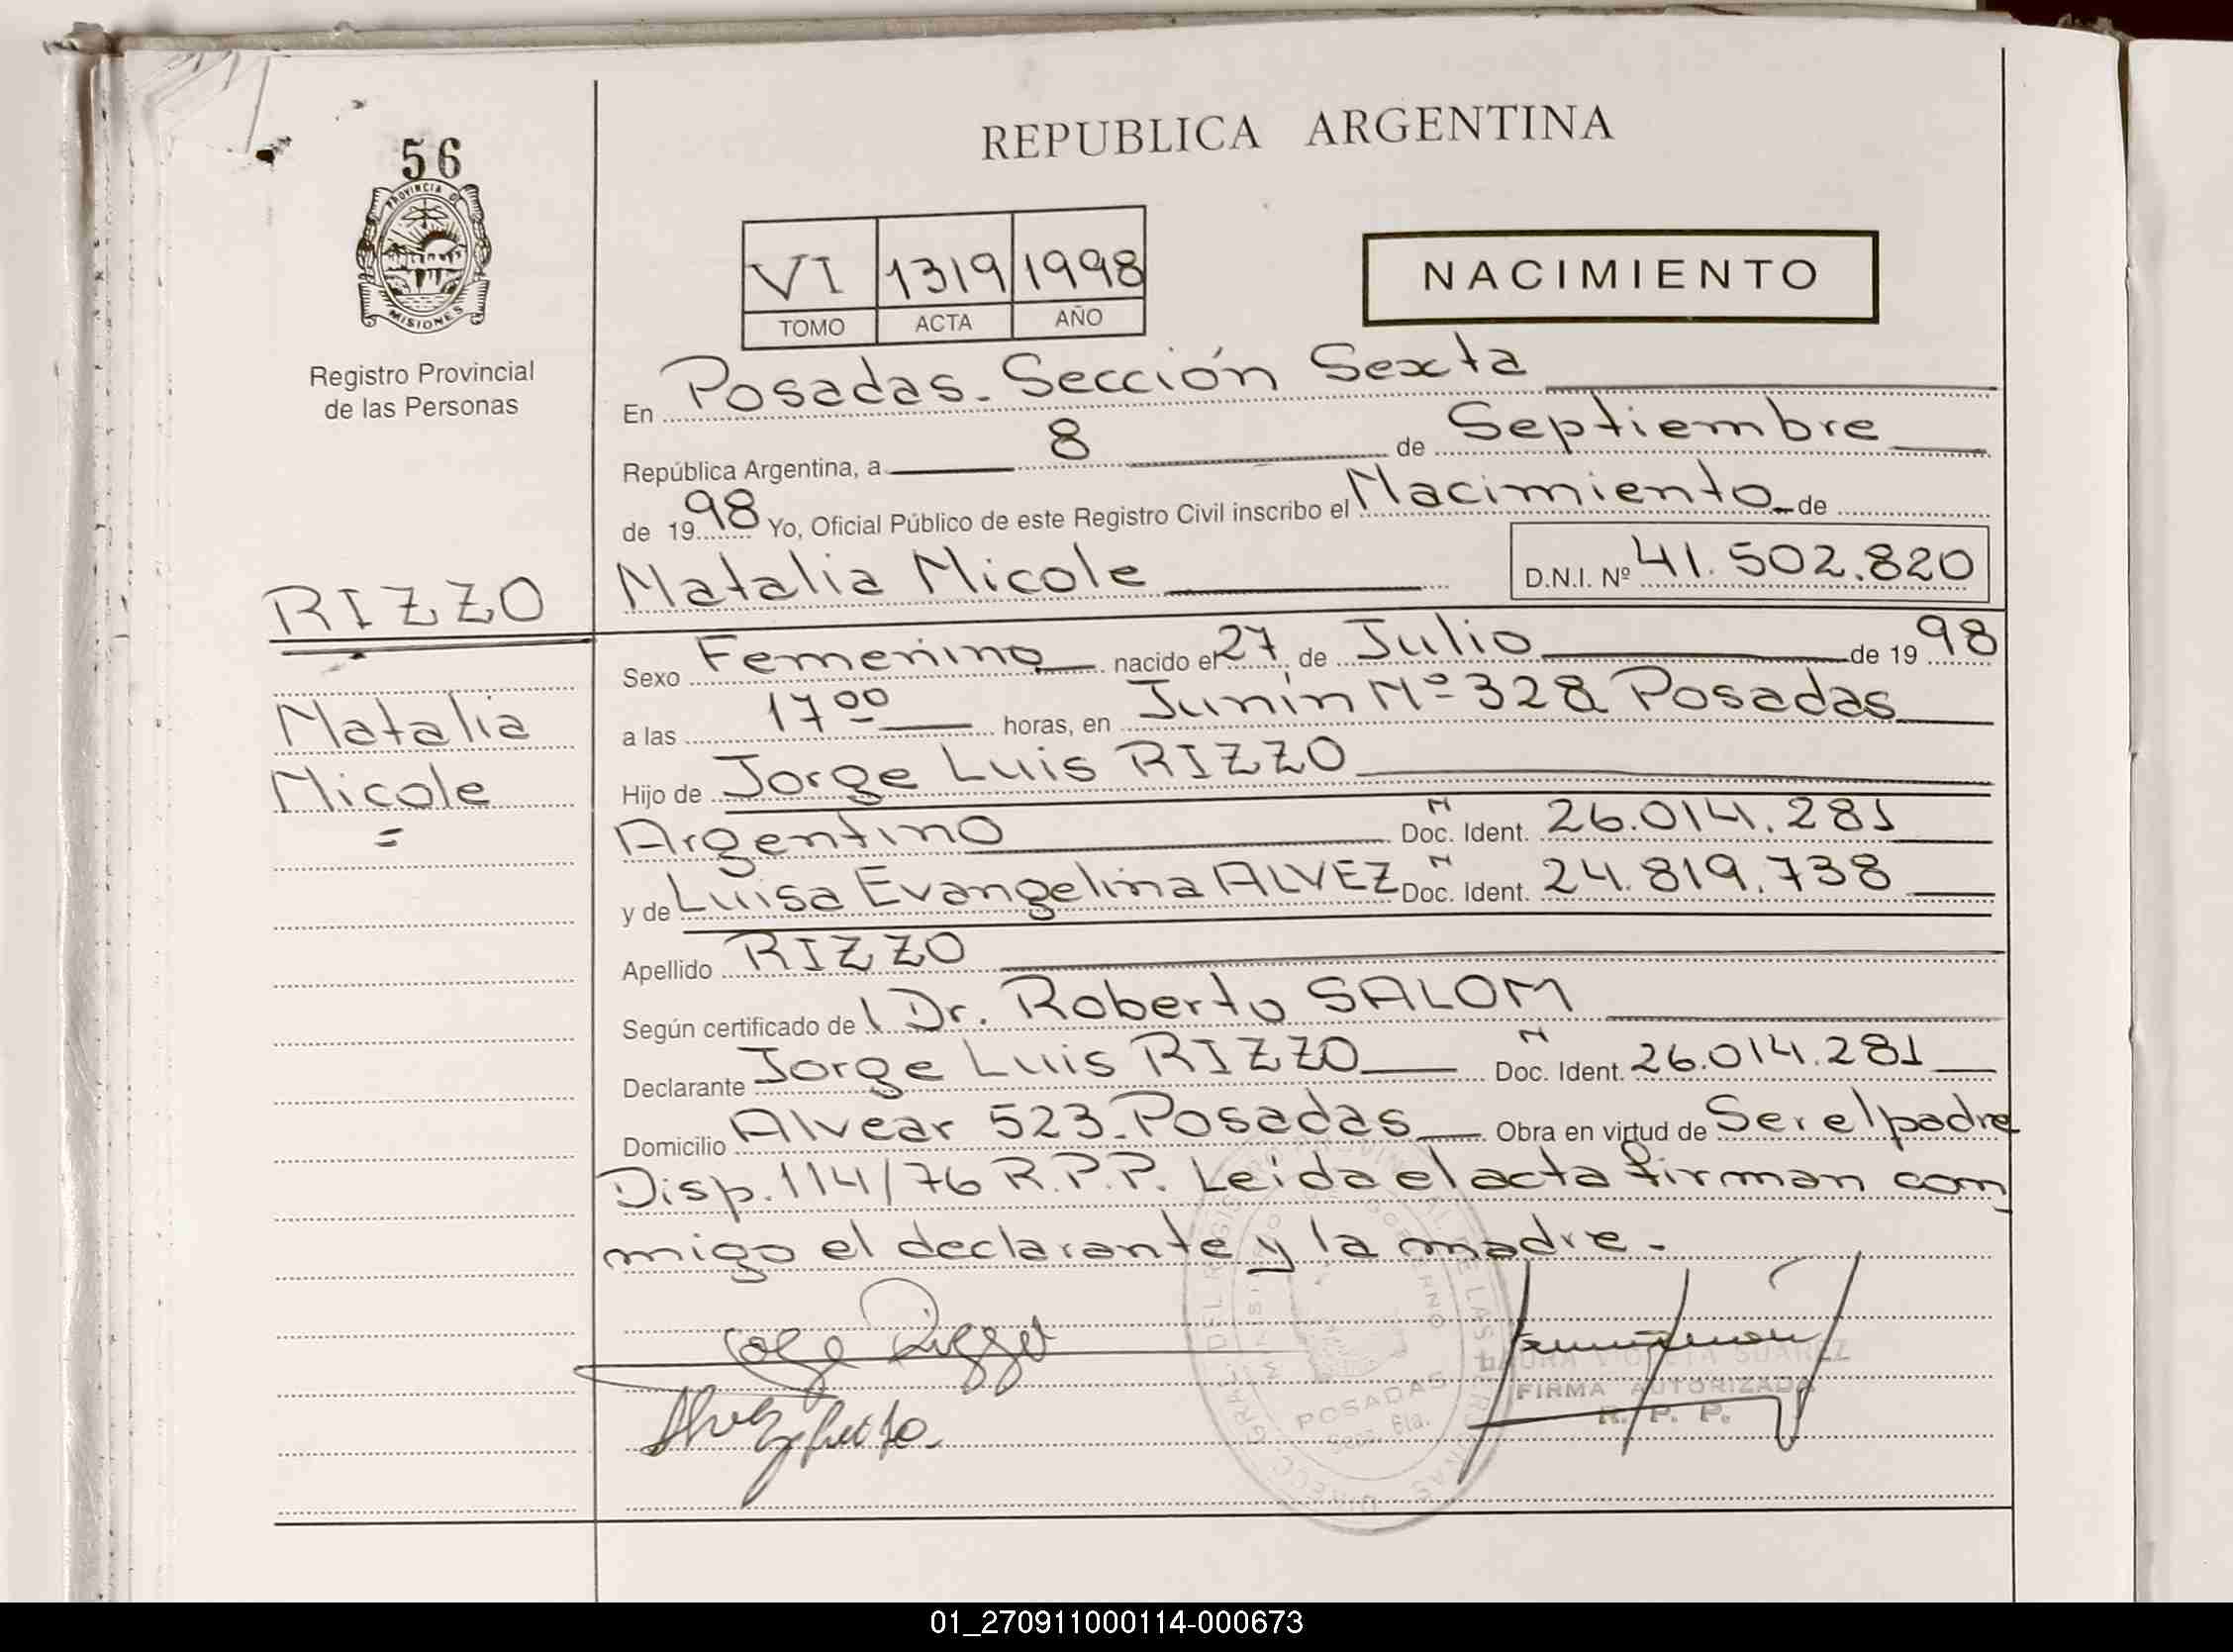 REPUBLICA ARGENTINA
56
PROVINCIA D
MISIONES
Registro Provincial
de las Personas
VI 1319 1998
TOMO ACTA AÑO
NACIMIENTO
En Posadas. Sección Sexta
República Argentina, a 8 de Septiembre
de 1998 Yo, Oficial Público de este Registro Civil inscribo el Nacimiento de
RIZZO
Natalia Nicole D.N.I. Nº 41.502.820
Sexo Femenino nacido el 27 de Julio de 1998
Natalia
Nicole
=
a las 17 00 horas, en Junín Nº 328 Posadas
Hijo de Jorge Luis RIZZO
Argentino N Doc. Ident. 26.014.281
y de Luisa Evangelina ALVEZ N Doc. Ident. 24.819.738
Apellido RIZZO
Según certificado de l Dr. Roberto SALOM
Declarante Jorge Luis RIZZO N Doc. Ident. 26.014.281
Domicilio Alvear 523. Posadas Obra en virtud de Ser el padre
Disp. 114/76 R.P.P. Leída el acta firman con
migo el declarante y la madre.
POSADAS
Secc. 6ta.
LAURA VIOLETA SUAREZ
FIRMA AUTORIZADA
R. P. P.
01_270911000114-000673